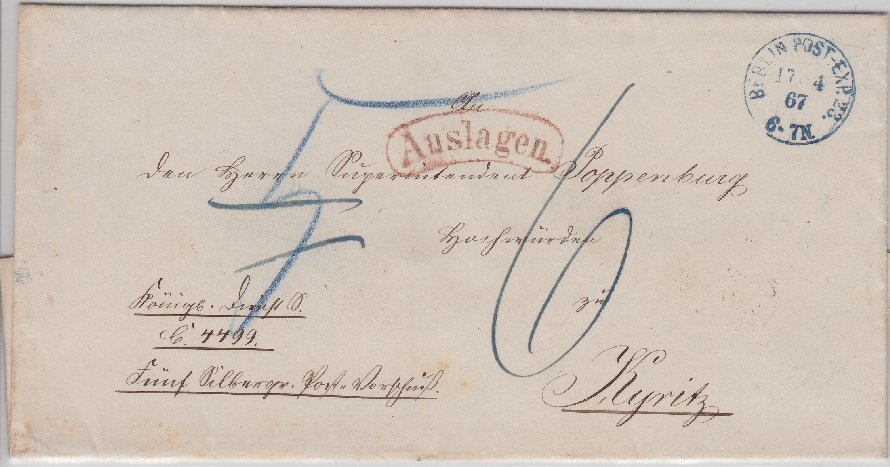 BERLIN POST-EXP. 23.
17. 4
67
6-7N.
5
6
An
Auslagen.
den Herrn Superintendent Poppenburg
Hochwürden
zu
Königl. Dienst S.
C. 4499.
Fünf Silbergr. Post-Vorschuß.
Kyritz